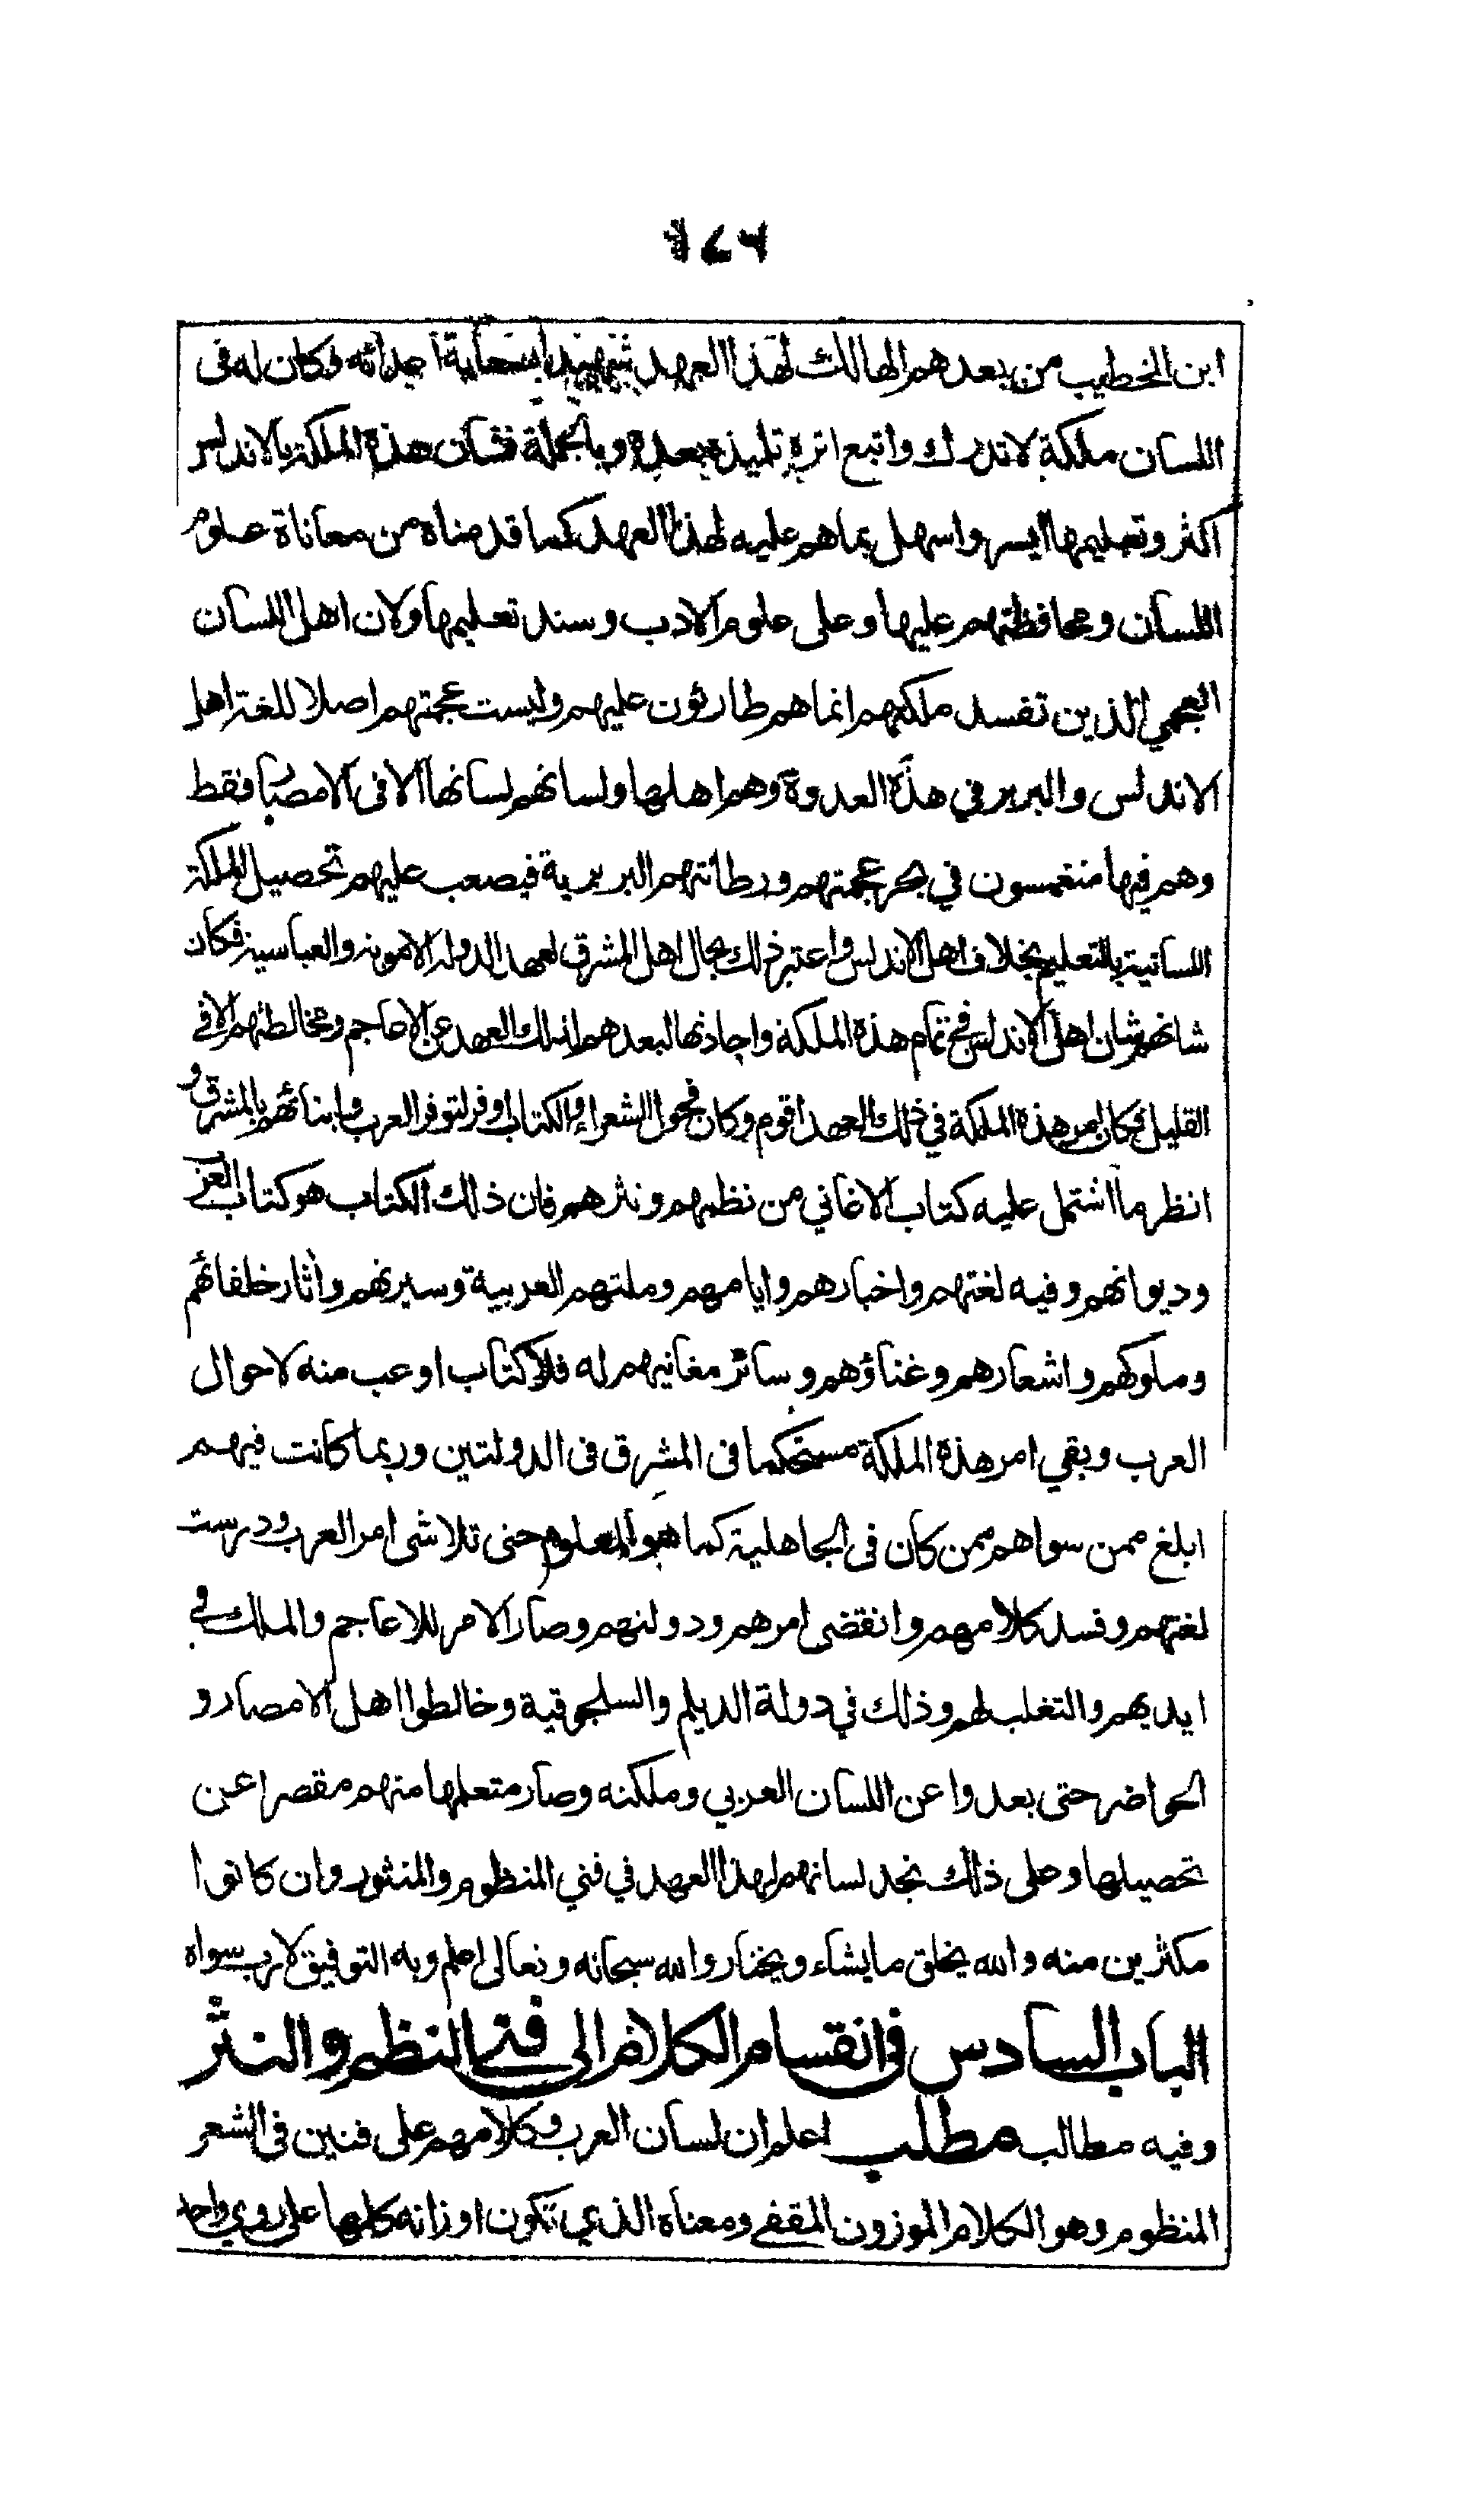 ابن الخطيب من بعدهم الهالك لهذا العهد شهيدا بسعاية اعدائه وكان له فى
اللسان ملكة لا تدرك واتبع اثره تلميذه بعده وبالجملة فشان هذه الملكة بالاندلس
اكثر وتعليمها ايسر واسهل بما هم عليه لهذا العهد كما قدمناه من معاناة علوم
اللسان ومحافظتهم عليها وعلى علوم الادب وسند تعليمها ولان اهل اللسان
العجمي الذين تفسد ملكتهم انما هم طارئون عليهم وليست عجمتهم اصلا للغة اهل
الاندلس والبربر في هذه العدوة وهم اهلها ولسانهم لسانها الا فى الامصار فقط
وهم فيها منغمسون في بحر عجمتهم ورطانتهم البربرية فيصعب عليهم تحصيل الملكة
اللسانية بالتعليم بخلاف اهل الاندلس واعتبر ذلك بحال اهل المشرق لعهد الدولة الاموية والعباسية فكان
شانهم شان اهل الاندلس في تمام هذه الملكة واجادتها لبعدهم لذلك العهد عن الاعاجم ومخالطتهم الا في
القليل فكان امر هذه الملكة في ذلك العهد اقوم وكان فحول الشعراء والكتاب اوفر لتوفر العرب وابنائهم بالمشرق و
انظر ما اشتمل عليه كتاب الاغاني من نظمهم ونثرهم فان ذلك الكتاب هو كتاب العرب
وديوانهم وفيه لغتهم واخبارهم وايامهم وملتهم العربية وسيرتهم واثار خلفائهم
وملوكهم واشعارهم وغناؤهم وسائر مغانيهم له فلا كتاب اوعب منه لاحوال
العرب وبقي امر هذه الملكة مستحكما فى المشرق فى الدولتين وربما كانت فيهم
ابلغ ممن سواهم ممن كان فى الجاهلية كما هو المعلوم حتى تلاشى امر العرب ودرست
لغتهم وفسد كلامهم وانقضى امرهم ودولتهم وصار الامر للاعاجم والملك في
ايديهم والتغلب لهم وذلك في دولة الديلم والسلجوقية وخالطوا اهل الامصار و
الحواضر حتى بعدوا عن اللسان العربي وملكته وصار متعلمها منهم مقصرا عن
تحصيلها وعلى ذلك نجد لسانهم لهذا العهد في فني المنظوم والمنثور وان كانوا
مكثرين منه والله يخلق ما يشاء ويختار والله سبحانه وتعالى اعلم وبه التوفيق لا رب سواه
الباب السادس فى انقسام الكلام الى فني النظم والنثر
وفيه مطالب مطلب اعلم ان لسان العرب وكلامهم على فنين فى الشعر
المنظوم وهو الكلام الموزون المقفى ومعناه الذي تكون اوزانه كلها على روي واحد